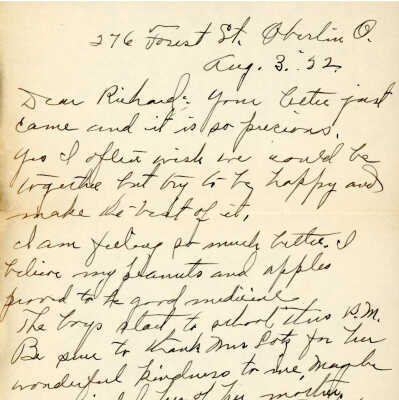 276 Forest St. Oberlin O.
Aug. 3. 22.
Dear Richard: Your letter just
came and it is so precious.
Yes I often wish we could be
together but try to be happy and
make the best of it.
I am feeling so much better. I
believe my peanuts and apples
proved to be good medicine
The boys start to school this P.M.
Be sure to thank Mrs for her
wonderful kindness to me, Maybe
of her mother,